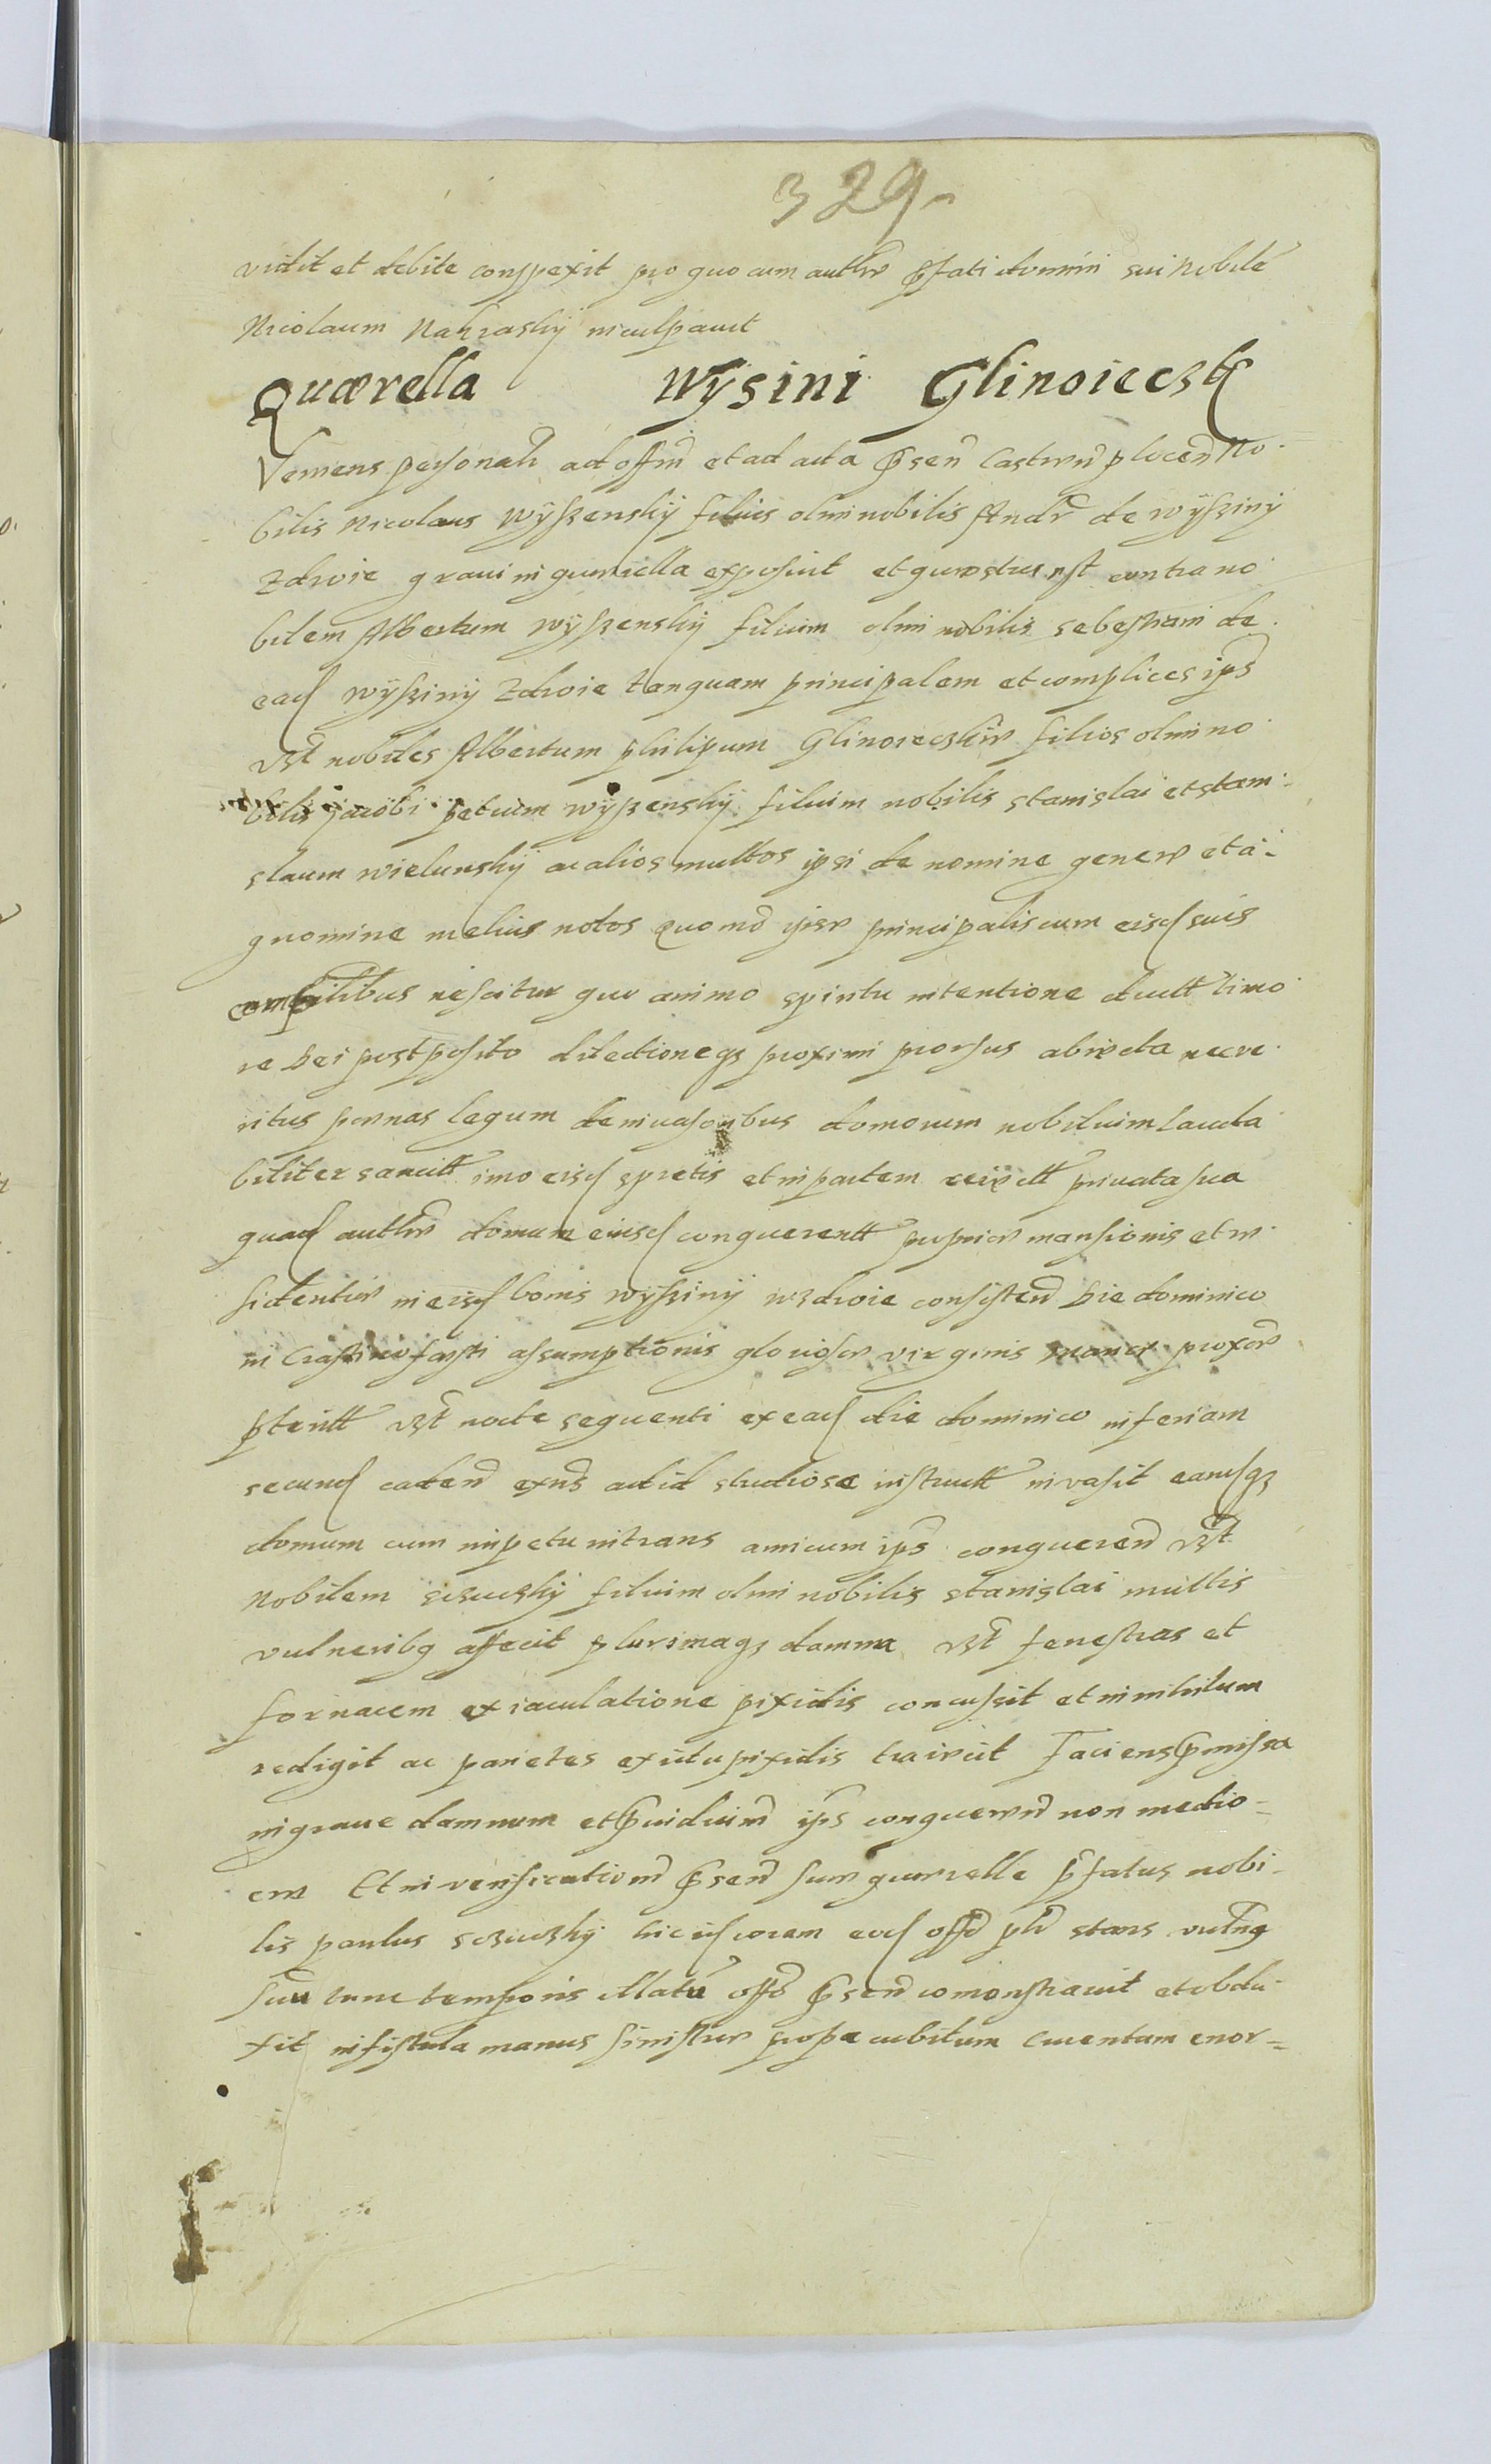 329
vidit et debite conspexit pro quo cum authore pfati domini sui nobile
Nicolaum Nakraskij inculpavit
Quærella Wysini Glinoieczk
Veniens personalr ad offm et ad acta psen Castren plocen No
bilis Nicolaus Wyszenskij filius olim nobilis Andr de wysziny
Zdroie gravi in querella exposuit et questus est contra no
bilem Albertum Wyszenskij filium olim nobilis sebestiani de
ead wysziny Zdroie tanquam principalem et complices ips
vzt nobiles Albertum philipum Glinoieczkie filios olim no
bilis jacobi petrum wyszenskij filium nobilis stanislai et stani
slaum wielunskij ac alios multos ipsi de nomine genere et a
gnomine melius notos Quomo ipse principalis cum eisd suis
complicibus nescitur quo animo spiritu intentione ductt timo
re Dei postposito dilectioneqz proximi prorsus abiecta nec ve
ritus poenas legum de invasoribus domorum nobilium lauda
biliter sancitt imo eisd spretis et in partem reiectt privata sua
quad authte domum eiusd conquerentt propriae mansionis et re
sidentiae in eisd bonis wysziny wzdroie consisten Die dominico
in Crastino festi assumptionis gloriosae virginis mariae proxe
pteritt vzt nocte sequenti ex ead die dominico in feriam
secund caden exns ad id studiose instructt invasit eandqz
domum cum impetu intrans amicum ips conqueren vzt
Nobilem sczuczkij filium olim nobilis stanislai multis
vulneribq affecit plurimaqz damna vzt fenestras et
fornacem ex iaculatione pixidis concussit et in nihilum
redigit ac parietes ex ictu pixidis traiecit Faciens pmissa
in grave damnum et piudicium ips conqueren non medio
cre Et in verificationem psen suae quaerellae pfatus nobi
lis paulus sczuczkij hic id coram eod offo plr stans vulnq
suu tunc temporis illatu offo psen comonstravit et obdu
xit in fistula manus sinistrae prope cubitum cruentam enor